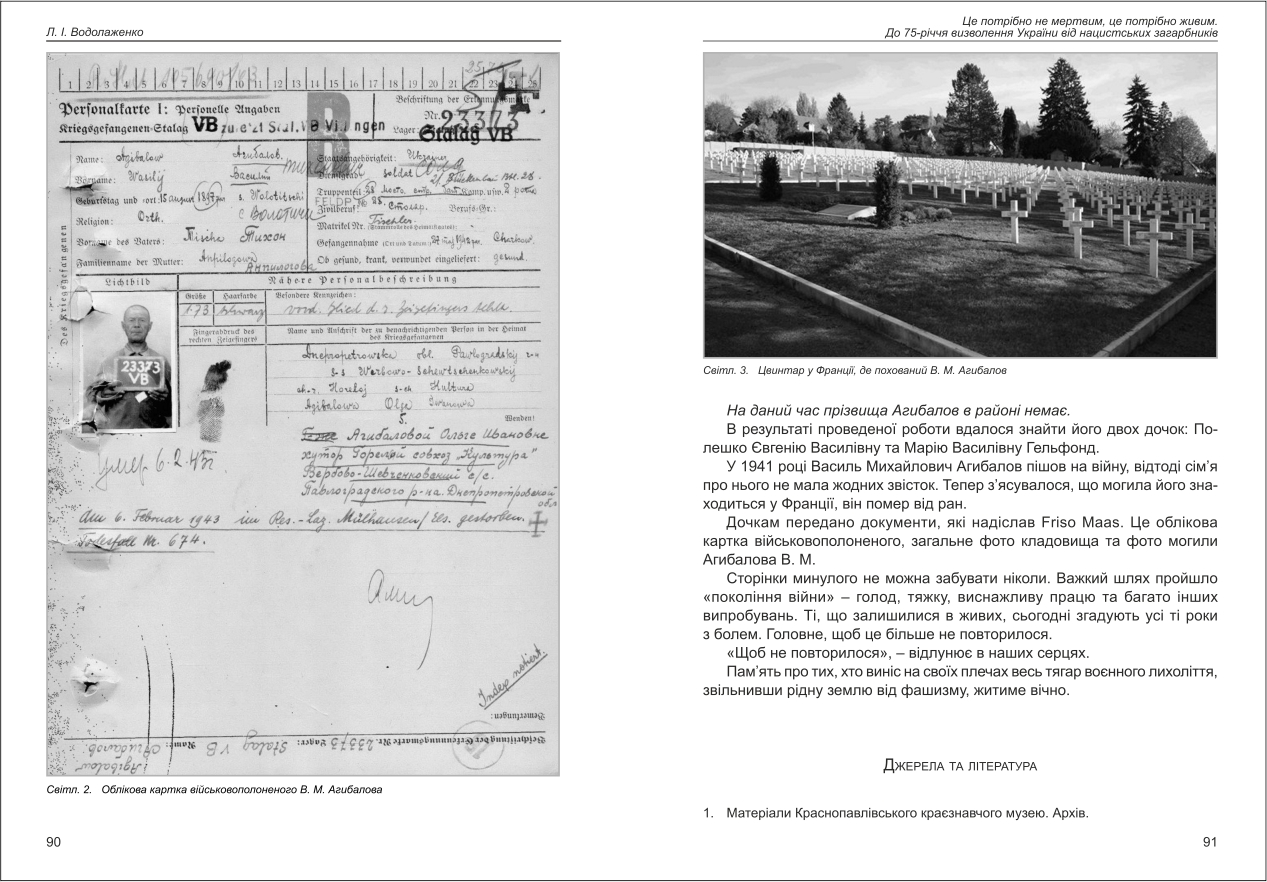 Л. І. Водолаженко
1 2 3 4 5 6 7 8 9 10 11 12 13 14 15 16 17 18 19 20 21 22 23 24 25
Personalkarte I: Personelle Angaben
Beschriftung der Erkennungsmarke
Kriegsgefangenen-Stalag VB
Nr. 23373
Lager: Stalag VB
Name: Agibalow Агибалов
Staatsangehörigkeit:
Vorname: Wasilij Василий
Dienstgrad: soldat
Geburtstag und -ort: 15 august
Truppenteil:
Religion: Orth.
Zivilberuf: Столяр. Berufs-Gr.:
Tischler.
Matrikel Nr.
Vorname des Vaters: Тихон
Gefangennahme (Ort und Datum): Charkow.
Familienname der Mutter: Anpilogowa
Анпилогова
Ob gesund, krank, verwundet eingeliefert: gesund.
Des Kriegsgefangenen
Lichtbild
Nähere Personalbeschreibung
Größe Haarfarbe Besondere Kennzeichen:
1.73 schwarz
Fingerabdruck des
rechten Zeigefingers
Name und Anschrift der zu benachrichtigenden Person in der Heimat
des Kriegsgefangenen
23373
VB
Dnepropetrowska obl. Pawlogradskij
s-s Werbowo-Schewtschenkowskij
Horeloj Kultura
Agibalowa Olga Iwanowna
Wenden!
Агибаловой Ольге Ивановне
хутор Горелый совхоз „Культура"
Вербово-Шевченковский с/с.
Павлоградского р-на. Днепропетровской
обл
умер 6.2.43
Am 6. Februar 1943 im Res.-Laz. Mülhausen/Els. gestorben.
Todesfall Nr. 674.
Bemerkungen:
Beschriftung der Erkennungsmarke Nr. 23373 Lager: Stalag VB Name: Агибалов.
Agibalow
Світл. 2. Облікова картка військовополоненого В. М. Агибалова
90
Це потрібно не мертвим, це потрібно живим.
До 75-річчя визволення України від нацистських загарбників
Світл. 3. Цвинтар у Франції, де похований В. М. Агибалов
На даний час прізвища Агибалов в районі немає.
В результаті проведеної роботи вдалося знайти його двох дочок: По-
лешко Євгенію Василівну та Марію Василівну Гельфонд.
У 1941 році Василь Михайлович Агибалов пішов на війну, відтоді сім’я
про нього не мала жодних звісток. Тепер з’ясувалося, що могила його зна-
ходиться у Франції, він помер від ран.
Дочкам передано документи, які надіслав Friso Maas. Це облікова
картка військовополоненого, загальне фото кладовища та фото могили
Агибалова В. М.
Сторінки минулого не можна забувати ніколи. Важкий шлях пройшло
«покоління війни» – голод, тяжку, виснажливу працю та багато інших
випробувань. Ті, що залишилися в живих, сьогодні згадують усі ті роки
з болем. Головне, щоб це більше не повторилося.
«Щоб не повторилося», – відлунює в наших серцях.
Пам’ять про тих, хто виніс на своїх плечах весь тягар воєнного лихоліття,
звільнивши рідну землю від фашизму, житиме вічно.
Джерела та література
1. Матеріали Краснопавлівського краєзнавчого музею. Архів.
91